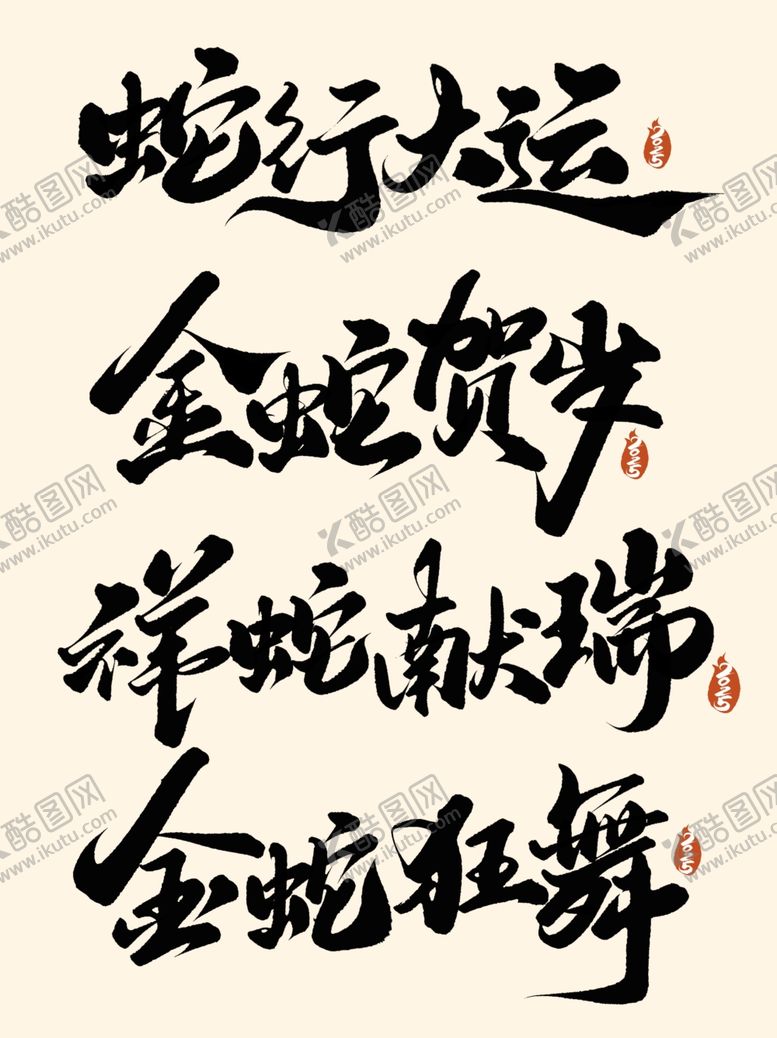 蛇行大运
2025
金蛇贺岁
2025
祥蛇献瑞
2025
金蛇狂舞
2025
酷图网
www.ikutu.com